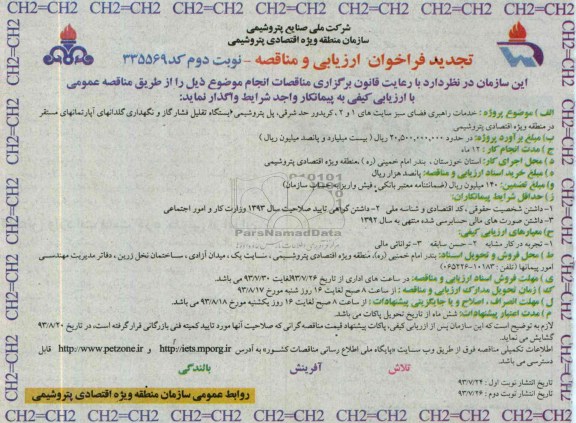 CH2=CH2 CH2=CH2 CH2=CH2 CH2=CH2 CH2=CH2 CH2=CH2 CH2=CH2
شرکت ملی صنایع پتروشیمی
سازمان منطقه ویژه اقتصادی پتروشیمی
تجدید فراخوان ارزیابی و مناقصه - نوبت دوم کد ۳۳۵۵۶۹
این سازمان در نظر دارد با رعایت قانون برگزاری مناقصات انجام موضوع ذیل را از طریق مناقصه عمومی
با ارزیابی کیفی به پیمانکار واجد شرایط واگذار نماید:
الف) موضوع پروژه: خدمات راهبری فضای سبز سایت های ۱ و ۲، کریدور حد شرقی، پل پتروشیمی، ایستگاه تقلیل فشار گاز و نگهداری گلدانهای آپارتمانهای مستقر
در منطقه ویژه اقتصادی پتروشیمی
ب) مبلغ برآورد پروژه: در حدود ۲۰,۵۰۰,۰۰۰,۰۰۰ ریال ( بیست میلیارد و پانصد میلیون ریال )
ج) مدت انجام کار: ۱۲ ماه
د) محل اجرای کار: استان خوزستان ، بندر امام خمینی (ره)، منطقه ویژه اقتصادی پتروشیمی
ه) مبلغ خرید اسناد ارزیابی و مناقصه: پانصد هزار ریال
و) مبلغ تضمین: ۱۴۰ میلیون ریال (ضمانتنامه معتبر بانکی، فیش واریز به حساب سازمان)
ز) حداقل شرایط پیمانکاران:
۱- داشتن شخصیت حقوقی ، کد اقتصادی و شناسه ملی ۲- داشتن گواهی تایید صلاحیت سال ۱۳۹۳ وزارت کار و امور اجتماعی
۳- داشتن صورت های مالی حسابرسی شده منتهی به سال ۱۳۹۲
ح) معیارهای ارزیابی کیفی:
۱- تجربه در کار مشابه ۲- حسن سابقه ۳- توانائی مالی
ط) محل فروش و تحویل اسناد: بندر امام خمینی (ره)، منطقه ویژه اقتصادی پتروشیمی ، سایت یک، میدان آزادی ، ساختمان نخل زرین ، دفاتر مدیریت مهندسی
امور پیمانها (تلفن : ۱۰۱۸۳-۰۶۵۲۲۶)
ی) مهلت فروش اسناد ارزیابی و مناقصه: در ساعت های اداری از تاریخ ۹۳/۷/۲۶ لغایت ۹۳/۷/۳۰ می باشد.
ک) زمان تحویل مدارک ارزیابی و مناقصه : از ساعت ۸ صبح لغایت ۱۶ روز شنبه مورخ ۹۳/۸/۱۷
ل) مهلت انصراف ، اصلاح و یا جایگزینی پیشنهادات : از ساعت ۸ صبح لغایت ۱۶ روز یکشنبه مورخ ۹۳/۸/۱۸ می باشد.
م) مدت اعتبار پیشنهادات: شش ماه از تاریخ تحویل پاکات می باشد.
لازم به توضیح است که این سازمان پس از ارزیابی کیفی، پاکات پیشنهاد قیمت مناقصه گرانی که صلاحیت آنها مورد تایید کمیته فنی بازرگانی قرار گرفته است، در تاریخ ۹۳/۸/۲۰
گشایش می نماید.
اطلاعات تکمیلی مناقصه فوق از طریق وب سایت «پایگاه ملی اطلاع رسانی مناقصات کشور» به آدرس http://iets.mporg.ir و http://www.petzone.ir قابل
دسترسی می باشد.
تلاش آفرینش بالندگی
تاریخ انتشار نوبت اول : ۹۳/۷/۲۴
تاریخ انتشار نوبت دوم : ۹۳/۷/۲۶
روابط عمومی سازمان منطقه ویژه اقتصادی پتروشیمی
ParsNamadData
CH2=CH2 CH2=CH2 CH2=CH2 CH2=CH2 CH2=CH2 CH2=CH2 CH2=CH2